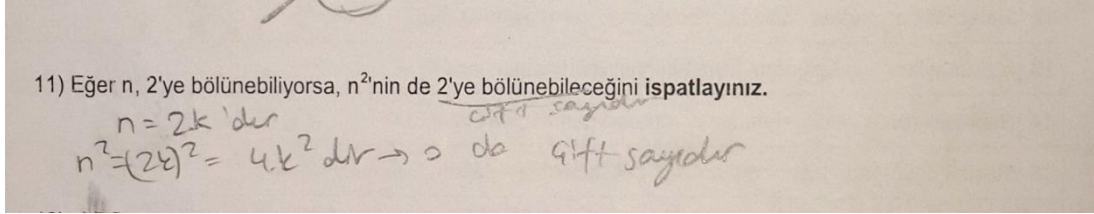 11) Eğer n, 2'ye bölünebiliyorsa, n²'nin de 2'ye bölünebileceğini ispatlayınız.
çift sayıdır
n = 2.k 'dır
n² = (2k)² = 4.k² dır → o da çift sayıdır